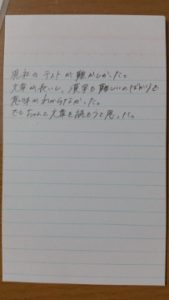 のテストが難かしかった。
文章が長いし、漢字も難しいのばかりで
意味がわからなかった。
もっとちゃんと文章を読もうと思った。